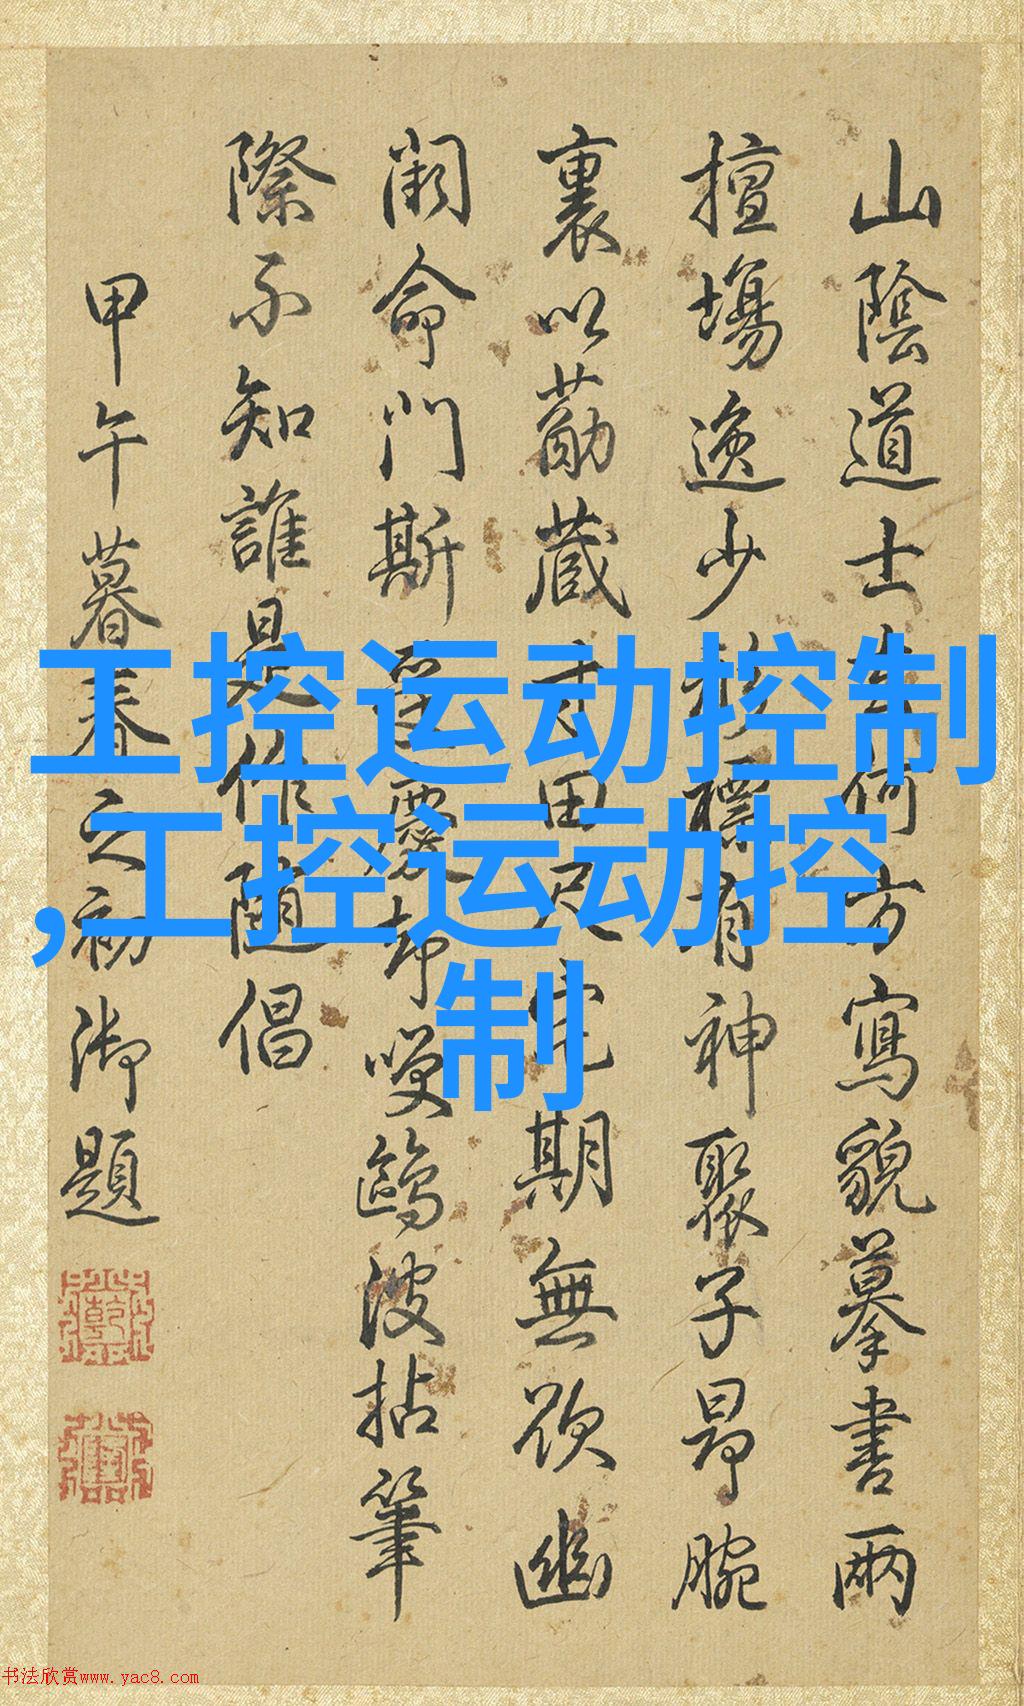 山陰道士何方寫貌摹書兩
擅場逸少標有神聚子昂腕
裏以勗蔵田尺宅期無欲幽
闕命門斯慶却咲鷗波拈筆
際不知誰是作隨倡
甲午暮春之初御題
工控运动控制
,工控运动控
制
书法欣赏www.yac8.com